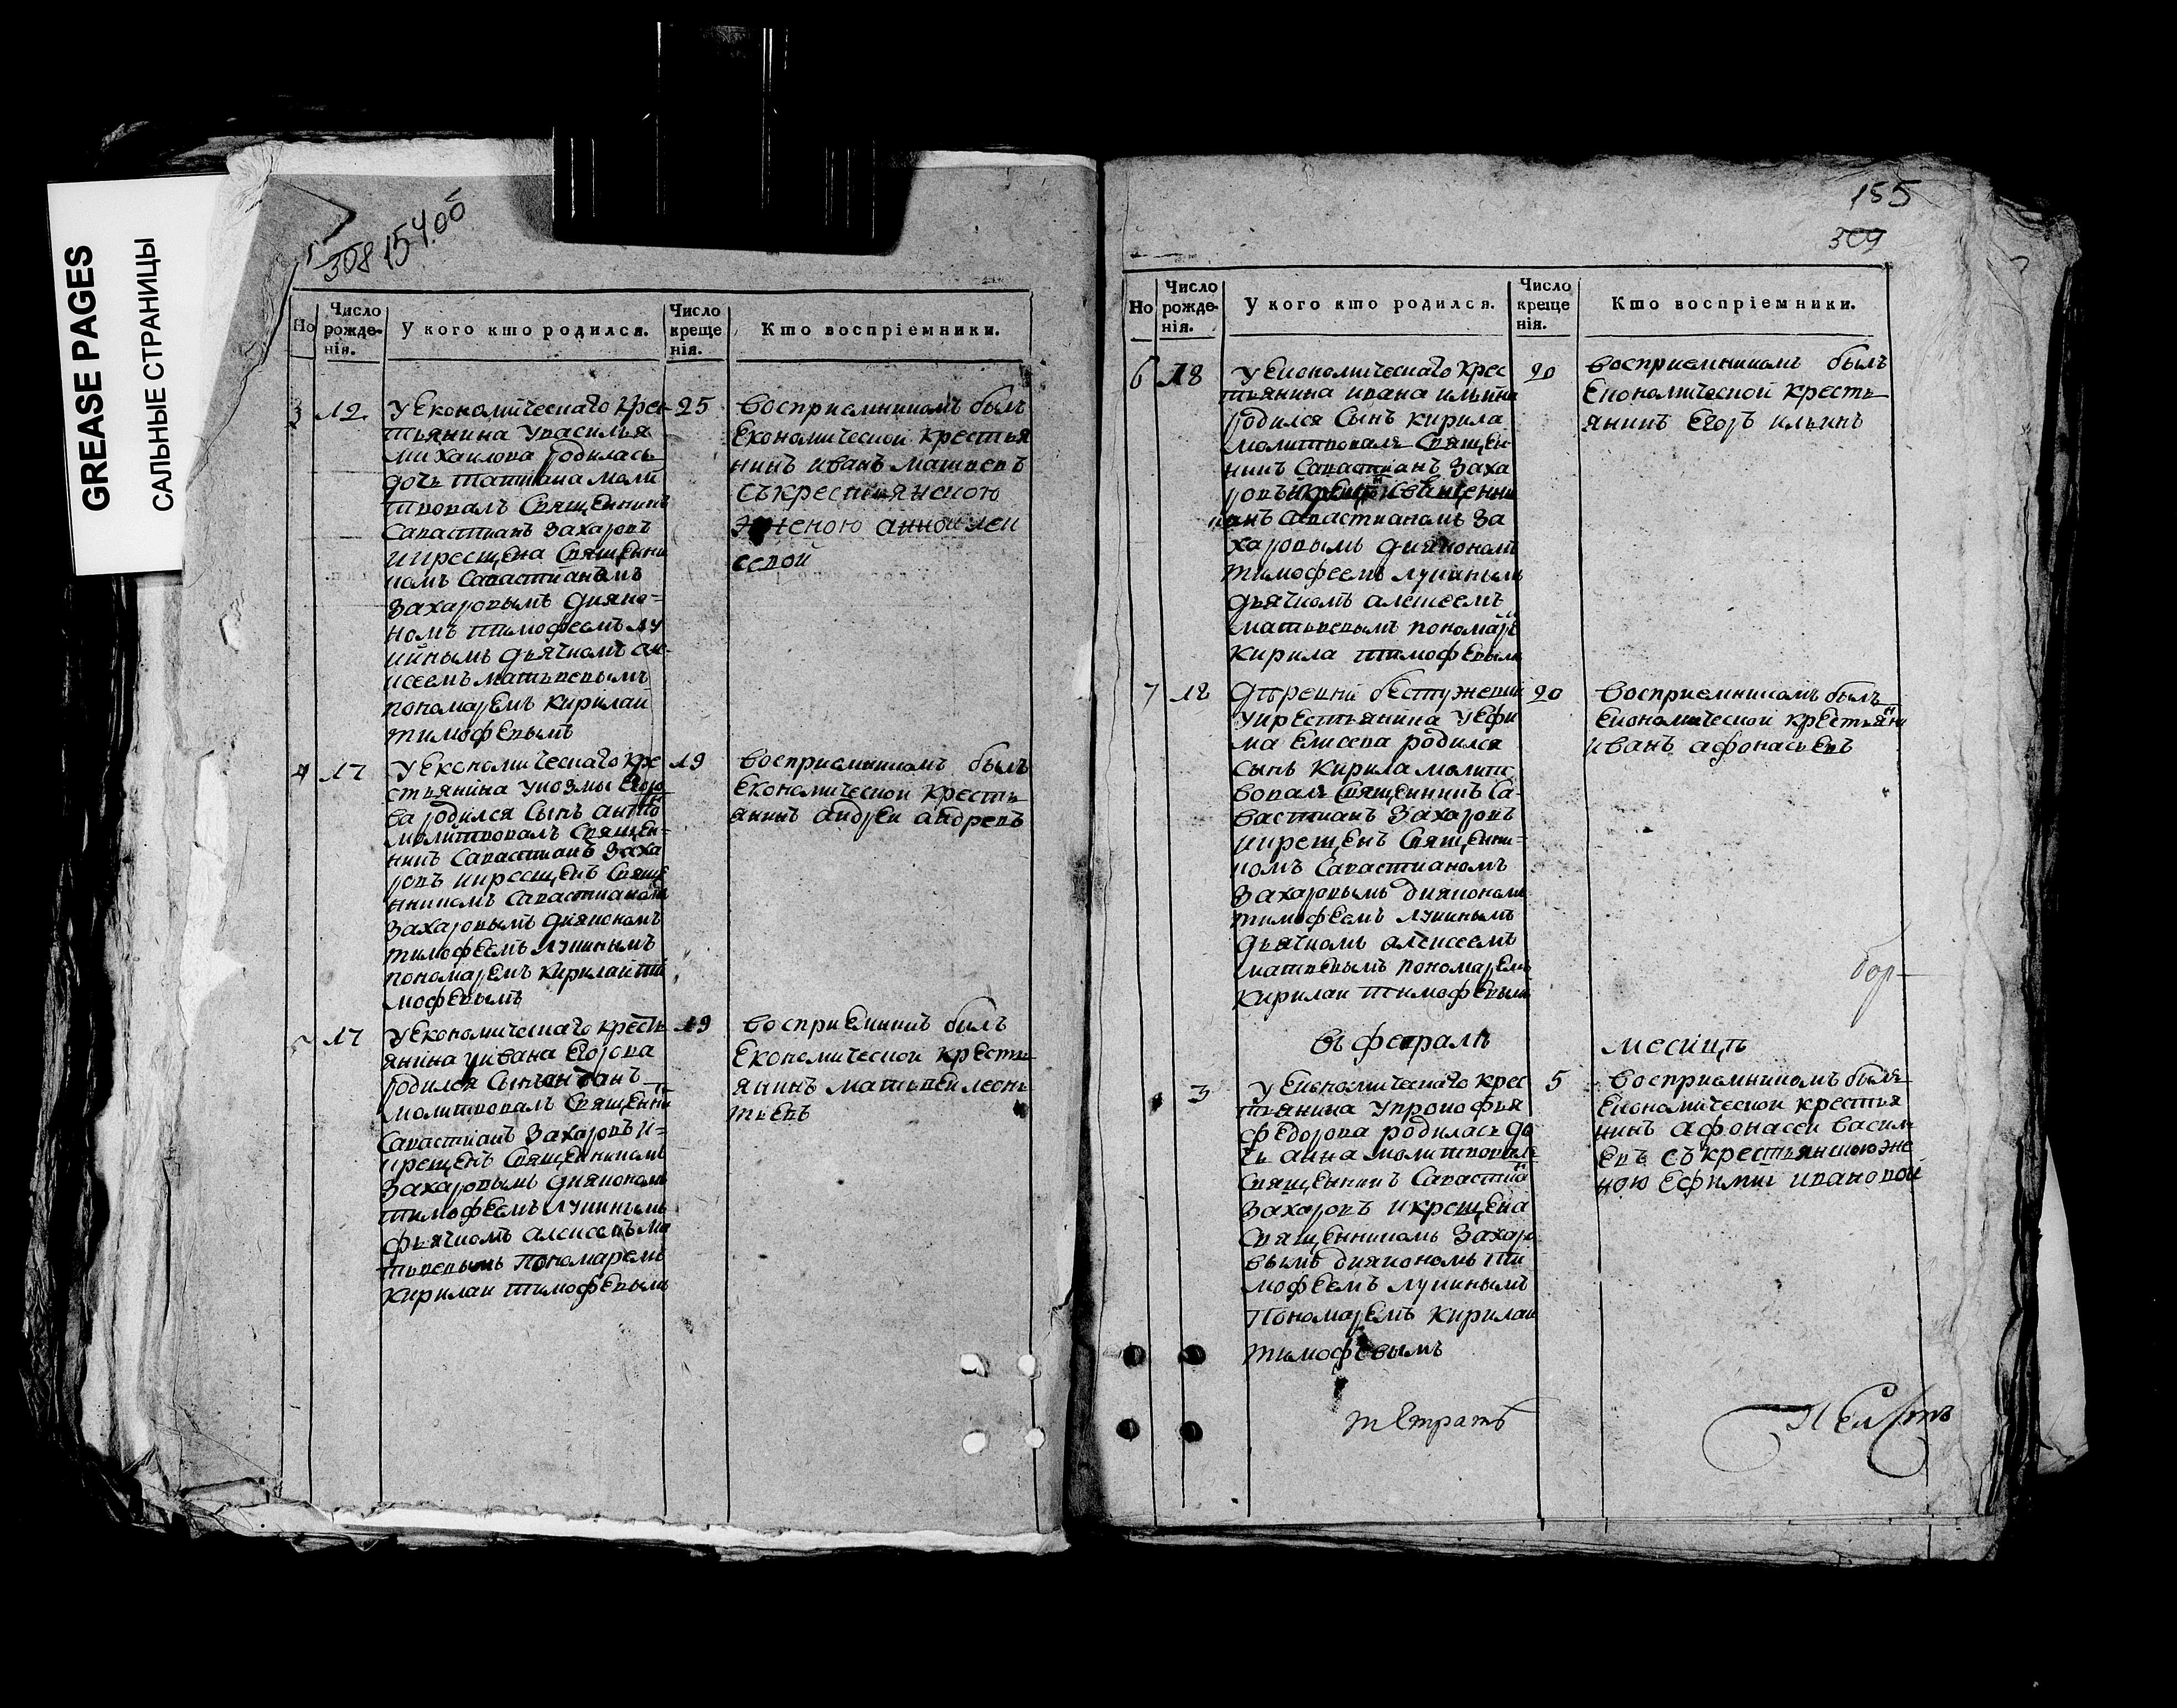 GREASE PAGES
САЛЬНЫЕ СТРАНИЦЫ
308 154об
Но
Число рожде-нія.
У кого кто родился.
Число креще нія.
Кто воспріемники.
3 12
У Економическаго крес
тьянина Увасилья
михаилова родилась
дочь татиана моли
твовалъ Священникъ
Савастианъ Захаровъ
икрещена Священни
комъ Савастианомъ
Захаровымъ дияко=
номъ тимофеемъ лу
кинымъ дьячкомъ але
ксеемъ матвеевымъ
пономаремъ кирилаи
тимофевымъ
25
восприемникомъ былъ
Економической крестья
нинъ иванъ матвевъ
съкрестьянскою
женою анной леи
севой
4 17
У Економическаго кре
стьянина укозмы Егоро
ва родился Сынъ антонъ
молитвовалъ Священ=
никъ Савастианъ Заха
ровъ икрещенъ Свяще
нникомъ Савастианомъ
Захаровымъ дияконом
тимофеемъ лукинымъ
пономаремъ кирилаи ти
мофевымъ
19
восприемникомъ былъ
Економической кресть
янинъ андреи андревъ
5 17
У Економическаго кресть
янина уивана Егорова
родился Сынъ
молитвовалъ Священни
Савастианъ Захаровъ и=
крещенъ Священникомъ
Захаровымъ дияконом
тимофеемъ лукинымъ
дьячкомъ алексеемъ ма
твевымъ пономаремъ
кирилаи тимофевымъ
19
восприемник былъ
Економической кресть
янинъ матвеи леон
тьевъ
155
309
Но
Число рожде-нія.
У кого кто родился.
Число креще нія.
Кто воспріемники.
6 18
У Економическаго крес
тьянина ивана ильина
родился Сынъ кирила
молитвовалъ Священ
никъ Савастианъ Заха
ровъ икрещен Священни
комъ Савастианомъ За
харовымъ дияконом
тимофеемъ лукинымъ
дьячкомъ алексеемъ
матвевымъ пономаре
кирила тимофевымъ
20
восприемникомъ былъ
Економической кресть
янинъ Егоръ ильинъ
7 18
Деревни бестужевки
укрестьянина уефи
ма Елисева родился
сынъ кирила молит
вовалъ Священникъ Са-
вастианъ Захаровъ
икрещенъ Священни=
комъ Савастианомъ
Захаровымъ дияконом
тимофеемъ лукинымъ
дьячкомъ алексеемъ
матвевымъ пономаремъ
кирилаи тимофевымъ
20
восприемникомъ былъ
Економической крестьяни
иванъ афонасьевъ
въ февралѣ
месяцѣ
3
У Економическаго крес
тьянина упрокофья
федорова родилась до
чь анна молитвовалъ
Священникъ Савастиа
Захаровъ икрещена
Священникомъ Захаро
вымъ дияконом ти
мофеемъ лукинымъ
пономаремъ кирилаи
тимофевымъ
5
восприемникомъ былъ
Економической крестья
нинъ афонасеи васил
евъ съ крестьянскою же
ною Ефимии ивановой
тетрать